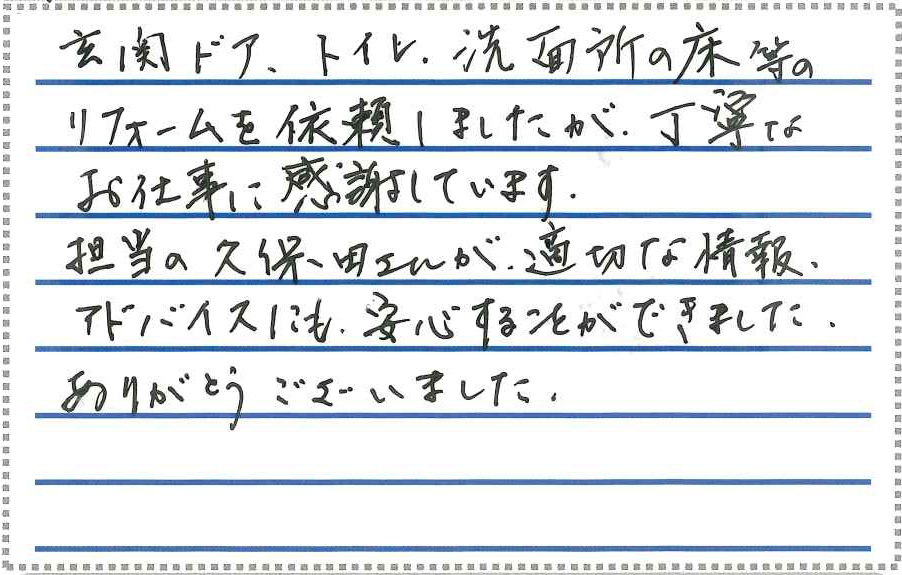 玄関ドア、トイレ、洗面所の床等の
リフォームを依頼しましたが、丁寧な
お仕事に感謝しています。
担当の久保田さんが、適切な情報、
アドバイスにも、安心することができました。
ありがとうございました。